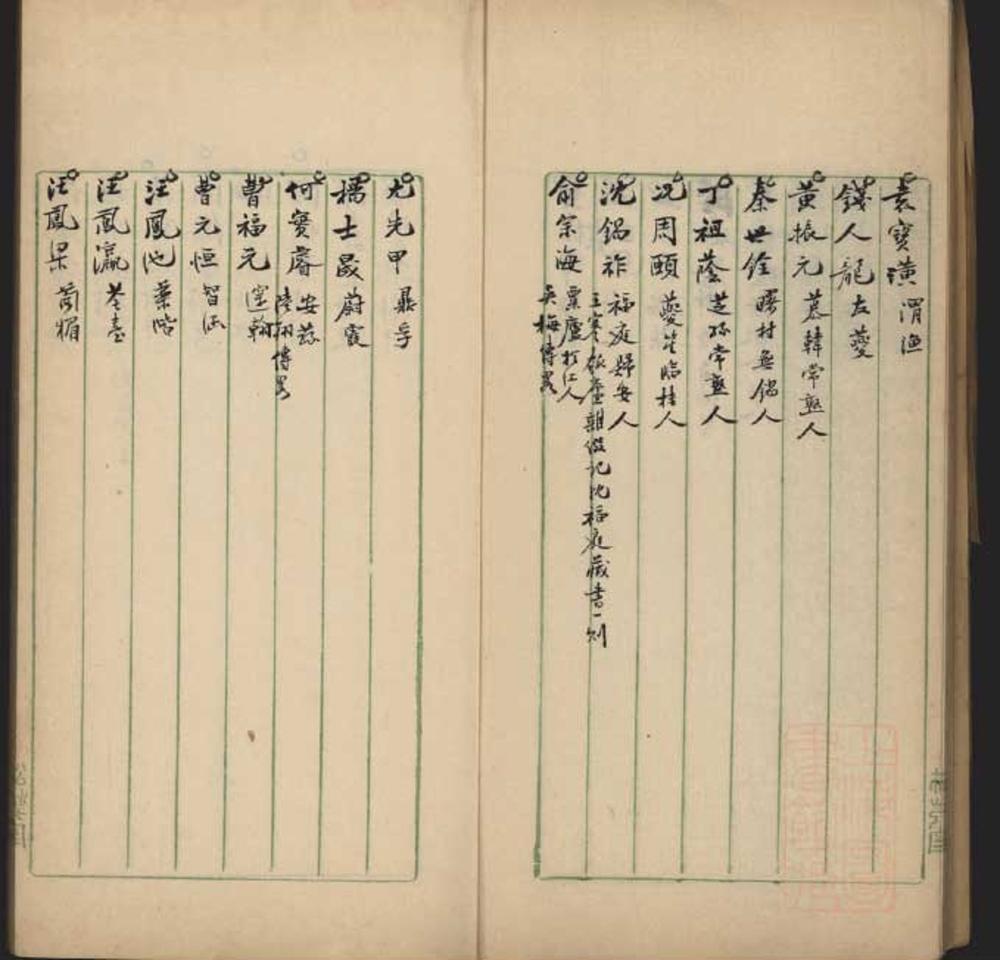 袁寶璜 渭漁
錢人龍 友夔
黃振元 慕韓 常熟人
秦世銓 曙村 無錫人
丁祖蔭 芝孫 常熟人
况周頤 夔笙 臨桂人
沈錫祚 福庭 歸安人
記沈福庭藏書一則
俞宗海 粟廬 松江人
吳梅傳畧
尤先甲 鼎孚
士晸 蔚霞
何寶睿 安茲
傳畧
曹福元 邃翰
曹元恒 智涵
汪鳳池 藥階
汪鳳瀛 荃臺
汪鳳梁 蘭楣